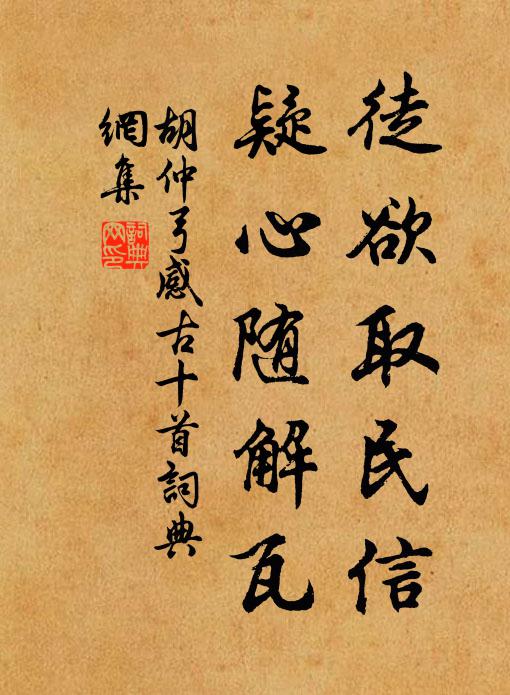 徒欲取民信
疑心随解瓦
胡仲弓感古十首詞典
網集
詞典網印